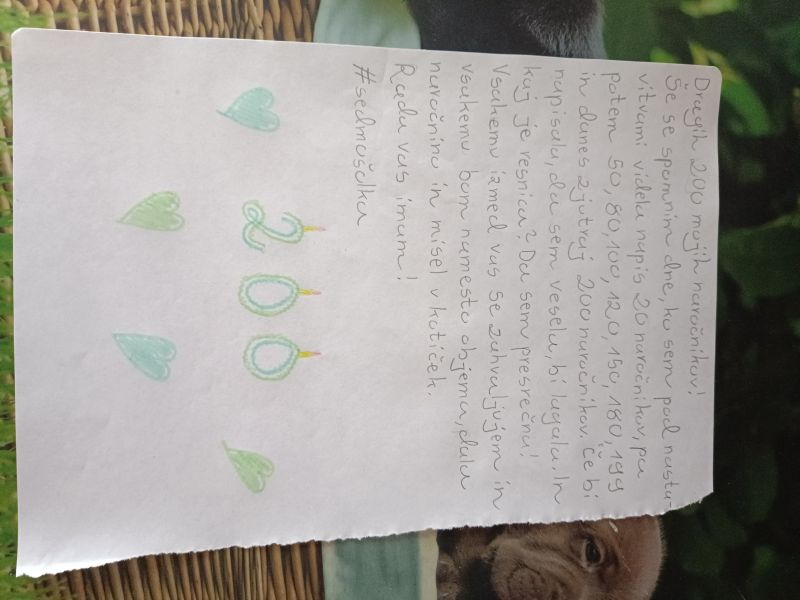 Dragih 200 mojih naročnikov!
Še se spomnim dne, ko sem pod nastu-
vitvami videla napis 20 naročnikov, pa
potem 50, 80, 100, 120, 150, 180, 199
in danes zjutraj 200 naročnikov. Če bi
napisala, da sem vesela, bi lagala. In
kaj je resnica? Da sem presrečna!
Vsakemu izmed vas se zahvaljujem in
vsakemu bom namesto objema, dala
naročnino in misel v kotiček.
Rada vas imam!
#sedmošolka
200